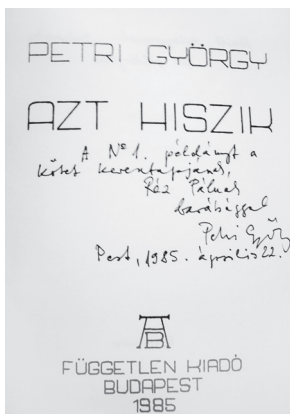 PETRI GYÖRGY
AZT HISZIK
A No 1. példányt a
kötet keresztapjának,
Réz Pálnak
barátsággal
Petri Győ
Pest, 1985. április 22.
AB
FÜGGETLEN KIADÓ
BUDAPEST
1985